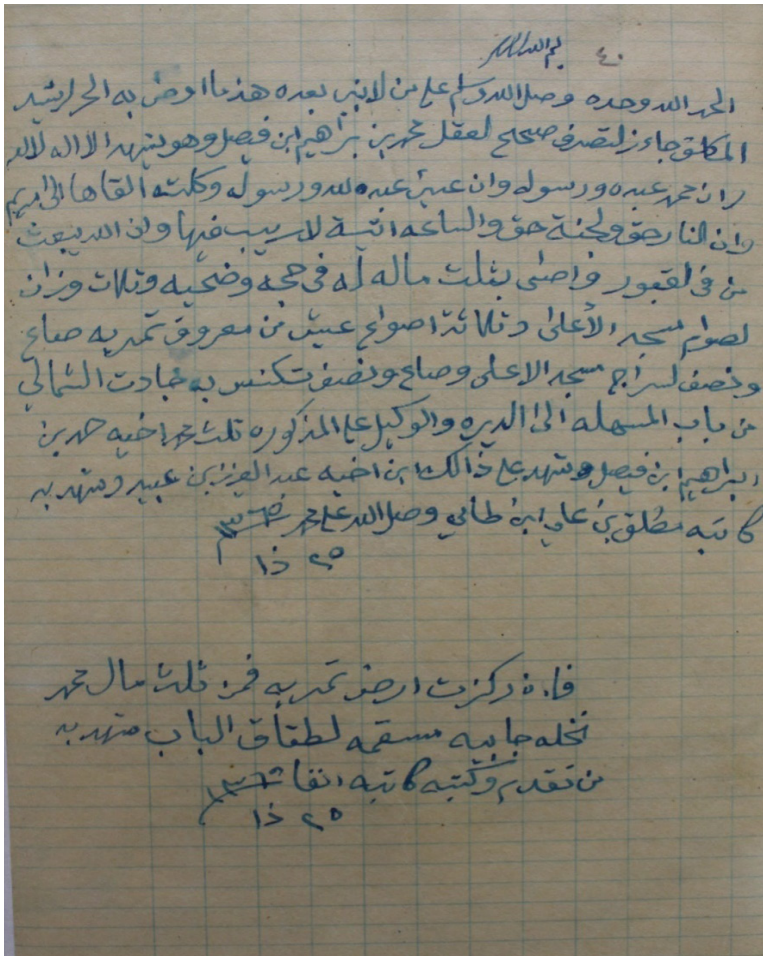 ٤٠ بسم الله
الحمد لله وحده وصل الله وسلم على من لا نبي بعده هذا ما اوصى به الحر الرشيد
المكلف جاءز لتصرف صحيح لعقل محمد بن براهيم ابن فيصل وهو يشهد الا اله لا الله
وان محمد عبده ورسوله وان عيسى عبد لله ورسوله وكلمته القاها الى مريم
وان النار حق ولجنة حق والساعه اتية لا ريب فيها وان الله يبعث
من في لقبور واصى بثلث ماله له في حجه وضحيه وثلاث وزان
لصوام مسجد الأعلى وثلاثة اصواع عيش من معروف تمديه صاع
ونصف لسراج مسجد الاعلى وصاع ونصف تكنس به جادت الشمالي
من باب المسهله الى الديره والوكيل على المذكوره ثلث محمد اخيه حمد بن
ابراهيم ابن فيصل وشهد على ذالك ابن اخيه عبد العزيز بن عبيد وشهد به
كاتبه مطلق بن علي ابن طامي وصل الله على محمد
٢٥ ذا
فاذ ركزت ارض تمديه فمن ثلث مال محمد
نخله جايبه مسقمه لطقاق الباب شهد به
من تقدم وكتبه كاتبه انفا
٢٥ ذا